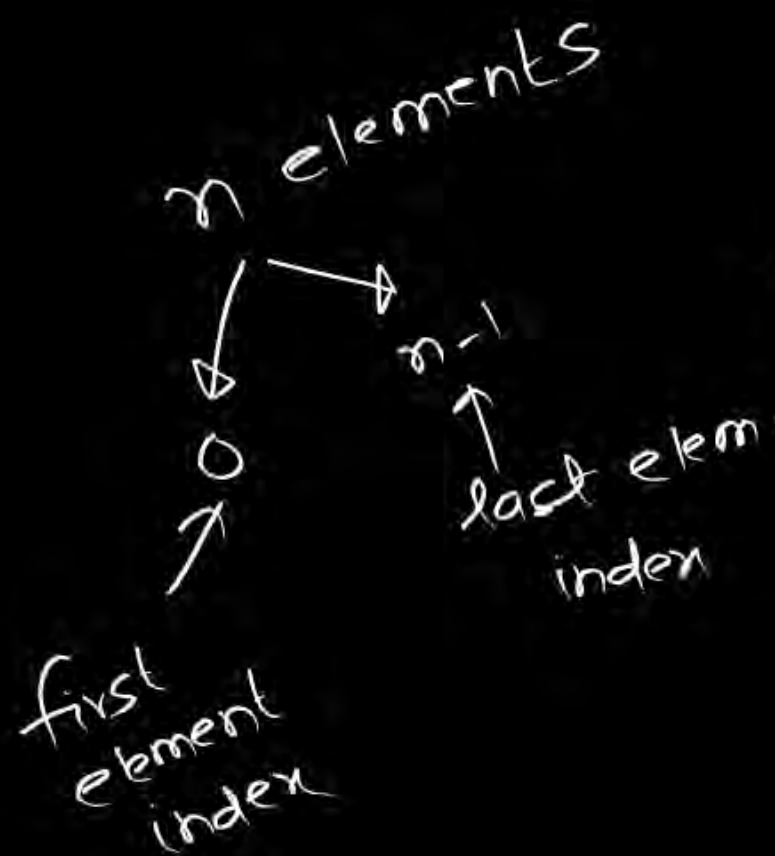 n elements
0
n-1
last elem
index
first
element
index